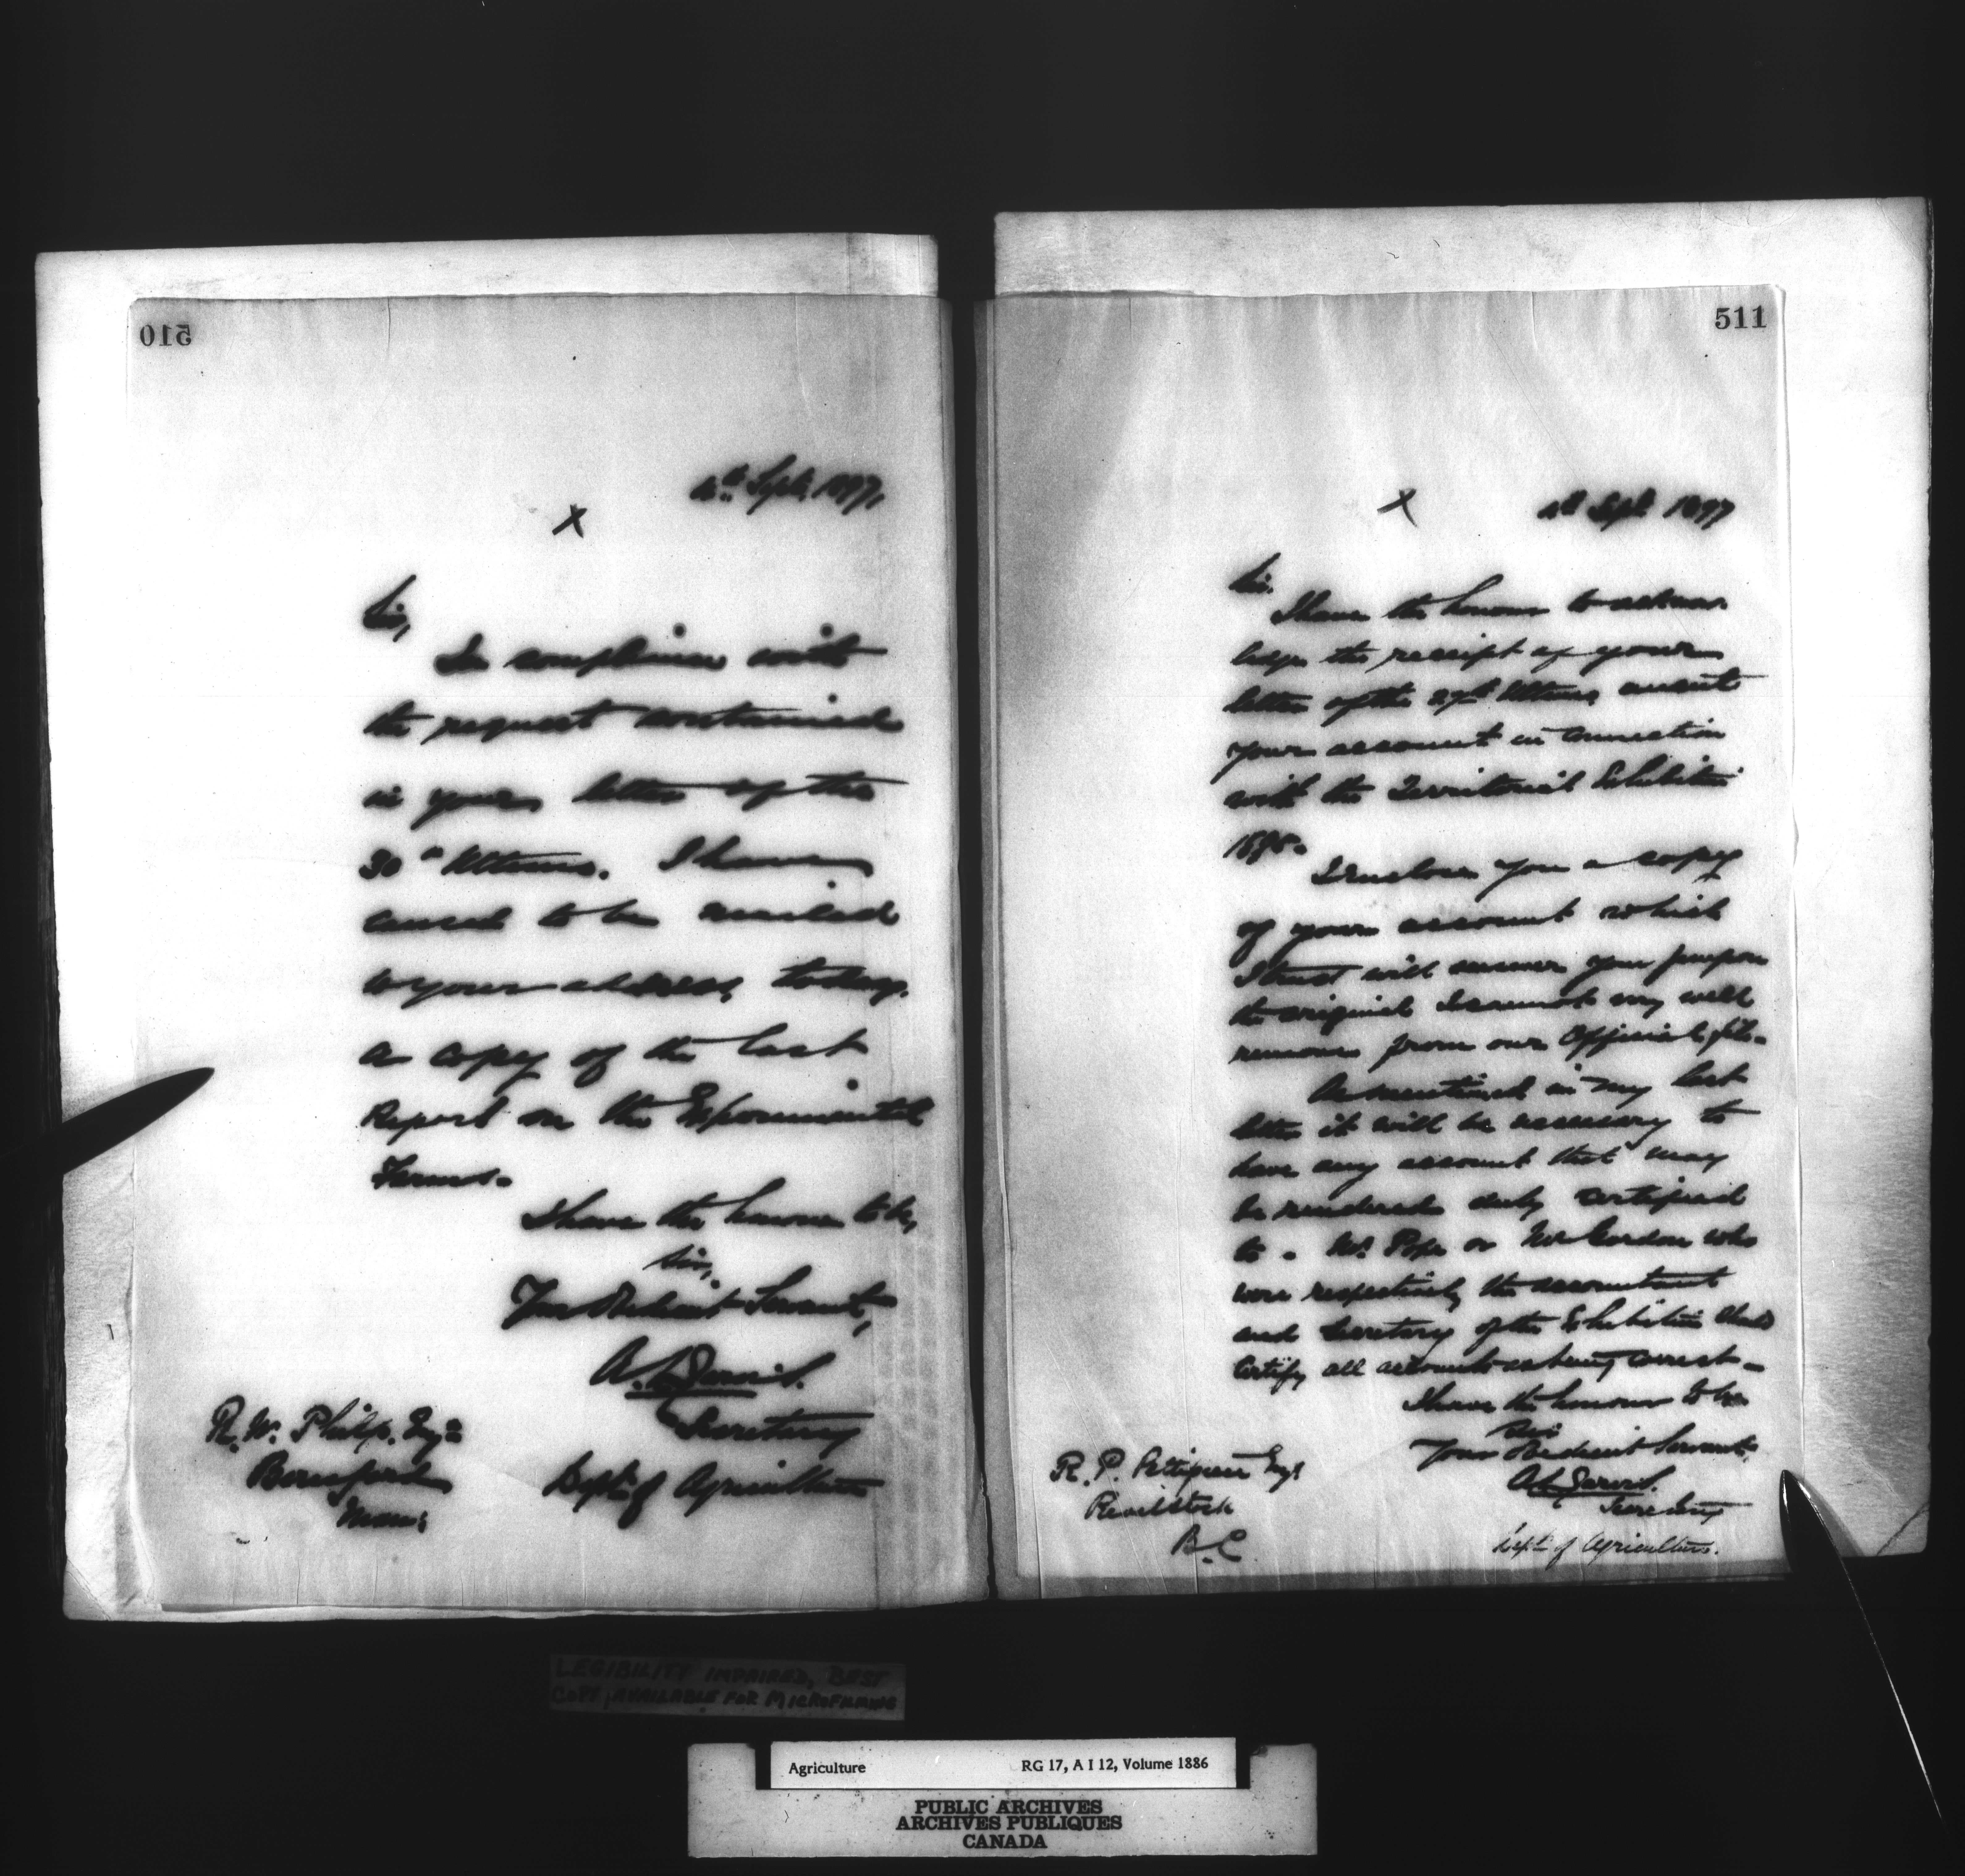 510
4th Sept. 1897,
X
Sir,
In compliance with
the request contained
in your letter of the
30th Ultimo. I have
caused to be mailed
to your address, today,
a copy of the last
Report on the Experimental
Farms.
I have the honour to be,
Sir,
Your Obedient Servant,
A. L. Jarvis.
Secretary
Dept. of Agriculture
R. W. Philp. Esqre
Beresford
Man:
511
X
4th Sept 1897
Sir.
I have the honour to acknow
ledge the receipt of your
letter of the 27th Ultimo, anent
your account in connection
with the Territorial Exhibition
1895.
I enclose you a copy
of your account which
I trust will answer your purpose
the original I cannot very well
remove from our Official file.
As mentioned in my last
letter it will be necessary to
have any account that may
be rendered duly certified
to. Mr. Pope or Mr. Gordon who
were respectively the accountant
and Secretary of the Exhibition should
certify all accounts as being correct.
I have the honour to be
Sir
Your Obedient Servant,
A. L. Jarvis.
Secretary
Dept. of Agriculture.
R. P. Pettipiece Esq
Revelstoke
B.C
LEGIBILITY IMPAIRED, BEST
COPY AVAILABLE FOR MICROFILMING
Agriculture RG 17, A I 12, Volume 1886
PUBLIC ARCHIVES
ARCHIVES PUBLIQUES
CANADA